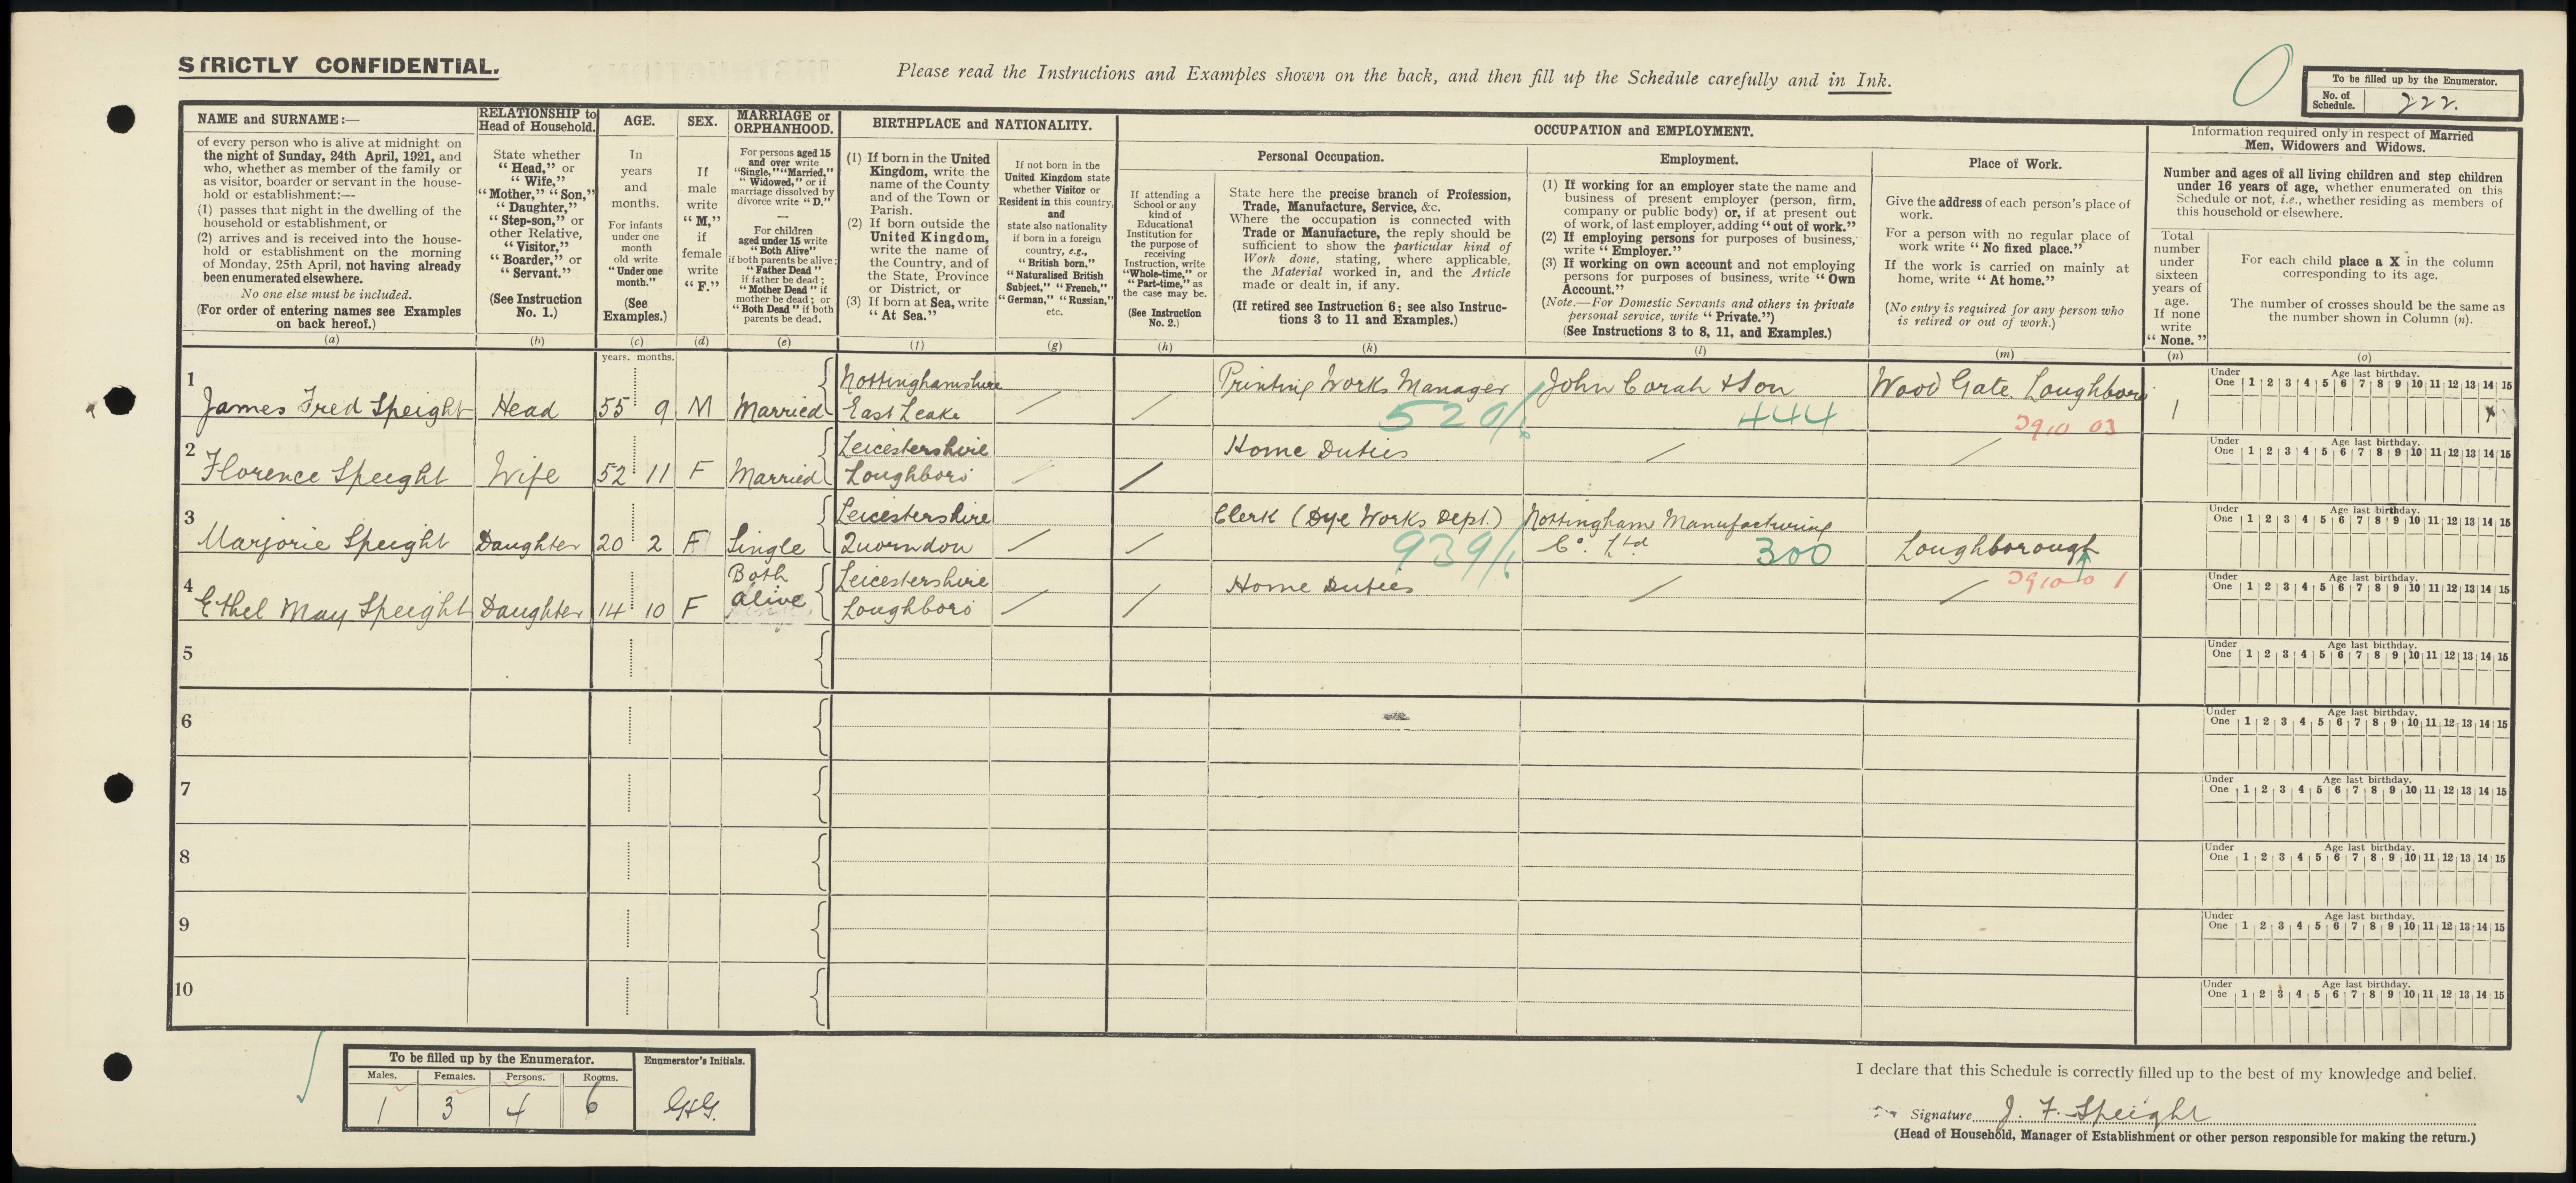 STRICTLY CONFIDENTIAL.
Please read the Instructions and Examples shown on the back, and then fill up the Schedule carefully and in Ink.
To be filled up by the Enumerator.
No. of Schedule. 222.
NAME and SURNAME:—
of every person who is alive at midnight on
the night of Sunday, 24th April, 1921, and
who, whether as member of the family or
as visitor, boarder or servant in the house-
hold or establishment:—
(1) passes that night in the dwelling of the
household or establishment, or
(2) arrives and is received into the house-
hold or establishment on the morning
of Monday, 25th April, not having already
been enumerated elsewhere.
No one else must be included.
(For order of entering names see Examples
on back hereof.)
(a)
RELATIONSHIP to
Head of Household.
State whether
“Head,” or
“Wife,”
“Mother,” “Son,”
“Daughter,”
“Step-son,” or
other Relative,
“Visitor,”
“Boarder,” or
“Servant.”
(See Instruction
No. 1.)
(b)
AGE.
In
years
and
months.
For infants
under one
month
old write
“Under one
month.”
(See
Examples.)
(c)
SEX.
If
male
write
“M,”
if
female
write
“F.”
(d)
MARRIAGE or
ORPHANHOOD.
For persons aged 15
and over write
“Single,” “Married,”
“Widowed,” or if
marriage dissolved by
divorce write “D.”
—
For children
aged under 15 write
“Both Alive”
if both parents be alive;
“Father Dead”
if father be dead;
“Mother Dead” if
mother be dead; or
“Both Dead” if both
parents be dead.
(e)
BIRTHPLACE and NATIONALITY.
(1) If born in the United
Kingdom, write the
name of the County
and of the Town or
Parish.
(2) If born outside the
United Kingdom,
write the name of
the Country, and of
the State, Province
or District, or
(3) If born at Sea, write
“At Sea.”
(f)
If not born in the
United Kingdom state
whether Visitor or
Resident in this country,
and
state also nationality
if born in a foreign
country, e.g.,
“British born,”
“Naturalised British
Subject,” “French,”
“German,” “Russian,”
etc.
(g)
OCCUPATION and EMPLOYMENT.
Personal Occupation.
If attending a
School or any
kind of
Educational
Institution for
the purpose of
receiving
Instruction, write
“Whole-time,” or
“Part-time,” as
the case may be.
(See Instruction
No. 2.)
(h)
State here the precise branch of Profession,
Trade, Manufacture, Service, &c.
Where the occupation is connected with
Trade or Manufacture, the reply should be
sufficient to show the particular kind of
Work done, stating, where applicable,
the Material worked in, and the Article
made or dealt in, if any.
(If retired see Instruction 6; see also Instruc-
tions 3 to 11 and Examples.)
(k)
Employment.
(1) If working for an employer state the name and
business of present employer (person, firm,
company or public body) or, if at present out
of work, of last employer, adding “out of work.”
(2) If employing persons for purposes of business,
write “Employer.”
(3) If working on own account and not employing
persons for purposes of business, write “Own
Account.”
(Note.—For Domestic Servants and others in private
personal service, write “Private.”)
(See Instructions 3 to 8, 11, and Examples.)
(l)
Place of Work.
Give the address of each person's place of
work.
For a person with no regular place of
work write “No fixed place.”
If the work is carried on mainly at
home, write “At home.”
(No entry is required for any person who
is retired or out of work.)
(m)
Information required only in respect of Married
Men, Widowers and Widows.
Number and ages of all living children and step children
under 16 years of age, whether enumerated on this
Schedule or not, i.e., whether residing as members of
this household or elsewhere.
Total
number
under
sixteen
years of
age.
If none
write
“None.”
(n)
For each child place a X in the column
corresponding to its age.
The number of crosses should be the same as
the number shown in Column (n).
(o)
years. months.
1 James Fred Speight Head 55 9 M Married Nottinghamshire East Leake / / Printing Works Manager 520/ John Corah & Son 444 Wood Gate, Loughboro 3910 03 1 x
Under One 1 2 3 4 5 6 7 8 9 10 11 12 13 14 15 Age last birthday.
2 Florence Speight Wife 52 11 F Married Leicestershire Loughboro / / Home Duties / /
Under One 1 2 3 4 5 6 7 8 9 10 11 12 13 14 15 Age last birthday.
3 Marjorie Speight Daughter 20 2 F Single Leicestershire Quorndon / / Clerk (Dye Works Dept.) 939/ Nottingham Manufacturing Co. Ltd 300 Loughborough 3910 01
Under One 1 2 3 4 5 6 7 8 9 10 11 12 13 14 15 Age last birthday.
4 Ethel May Speight Daughter 14 10 F Both alive Leicestershire Loughboro / / Home Duties / /
Under One 1 2 3 4 5 6 7 8 9 10 11 12 13 14 15 Age last birthday.
5
Under One 1 2 3 4 5 6 7 8 9 10 11 12 13 14 15 Age last birthday.
6
Under One 1 2 3 4 5 6 7 8 9 10 11 12 13 14 15 Age last birthday.
7
Under One 1 2 3 4 5 6 7 8 9 10 11 12 13 14 15 Age last birthday.
8
Under One 1 2 3 4 5 6 7 8 9 10 11 12 13 14 15 Age last birthday.
9
Under One 1 2 3 4 5 6 7 8 9 10 11 12 13 14 15 Age last birthday.
10
Under One 1 2 3 4 5 6 7 8 9 10 11 12 13 14 15 Age last birthday.
To be filled up by the Enumerator.
Enumerator's Initials.
Males. Females. Persons. Rooms.
1 3 4 6
I declare that this Schedule is correctly filled up to the best of my knowledge and belief.
Signature J. F. Speight
(Head of Household, Manager of Establishment or other person responsible for making the return.)